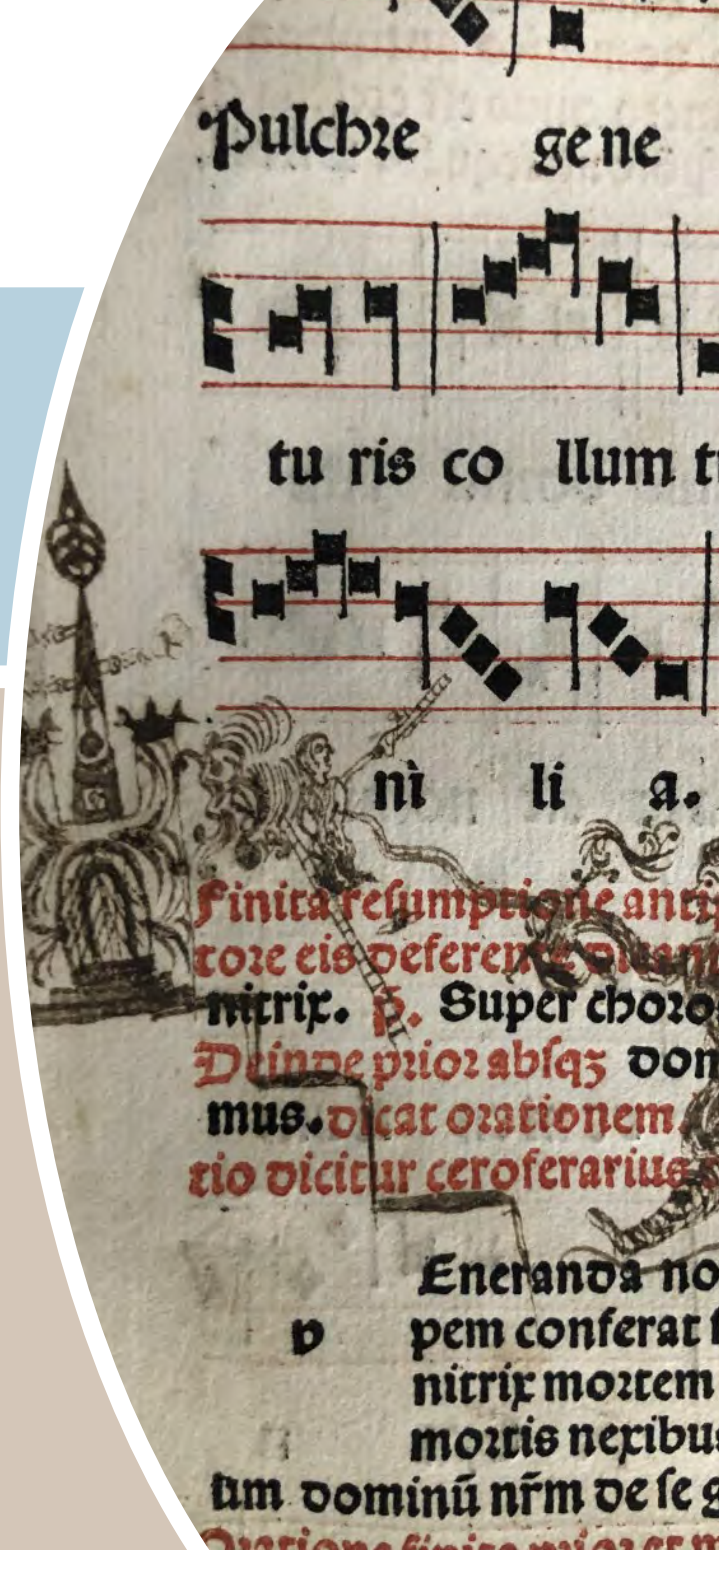 Pulchre gene
tu ris co llum tu
nì li a.
Finita resumptione anti
tore eis deferente dicant
nitrix. Super choro
Deinde prior absq; don
mus. dicat orationem
tio dicitur ceroferarius
Eneranda no
v pem conferat
nitrix mortem
mortis nexibus
tim dominū nr̄m de se g
Oratione finita prior et m